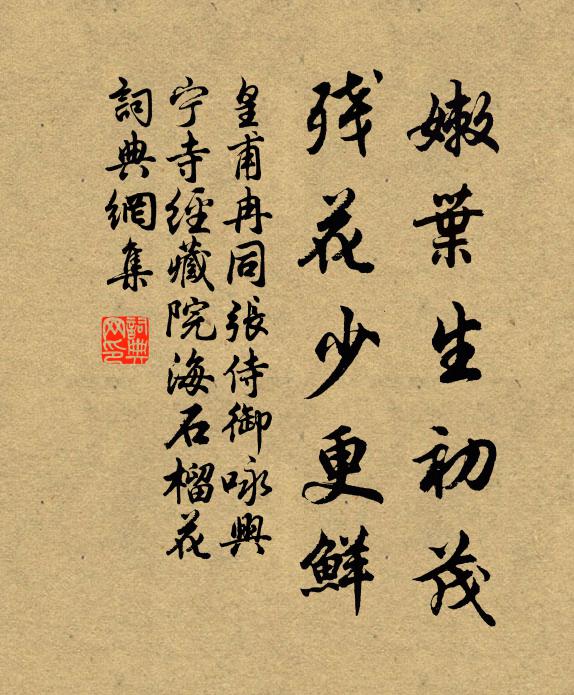 嫩葉生初茂
残花少更鮮
皇甫冉同張侍御咏興
宁寺經藏院海石榴花
詞典網集
詞典网印